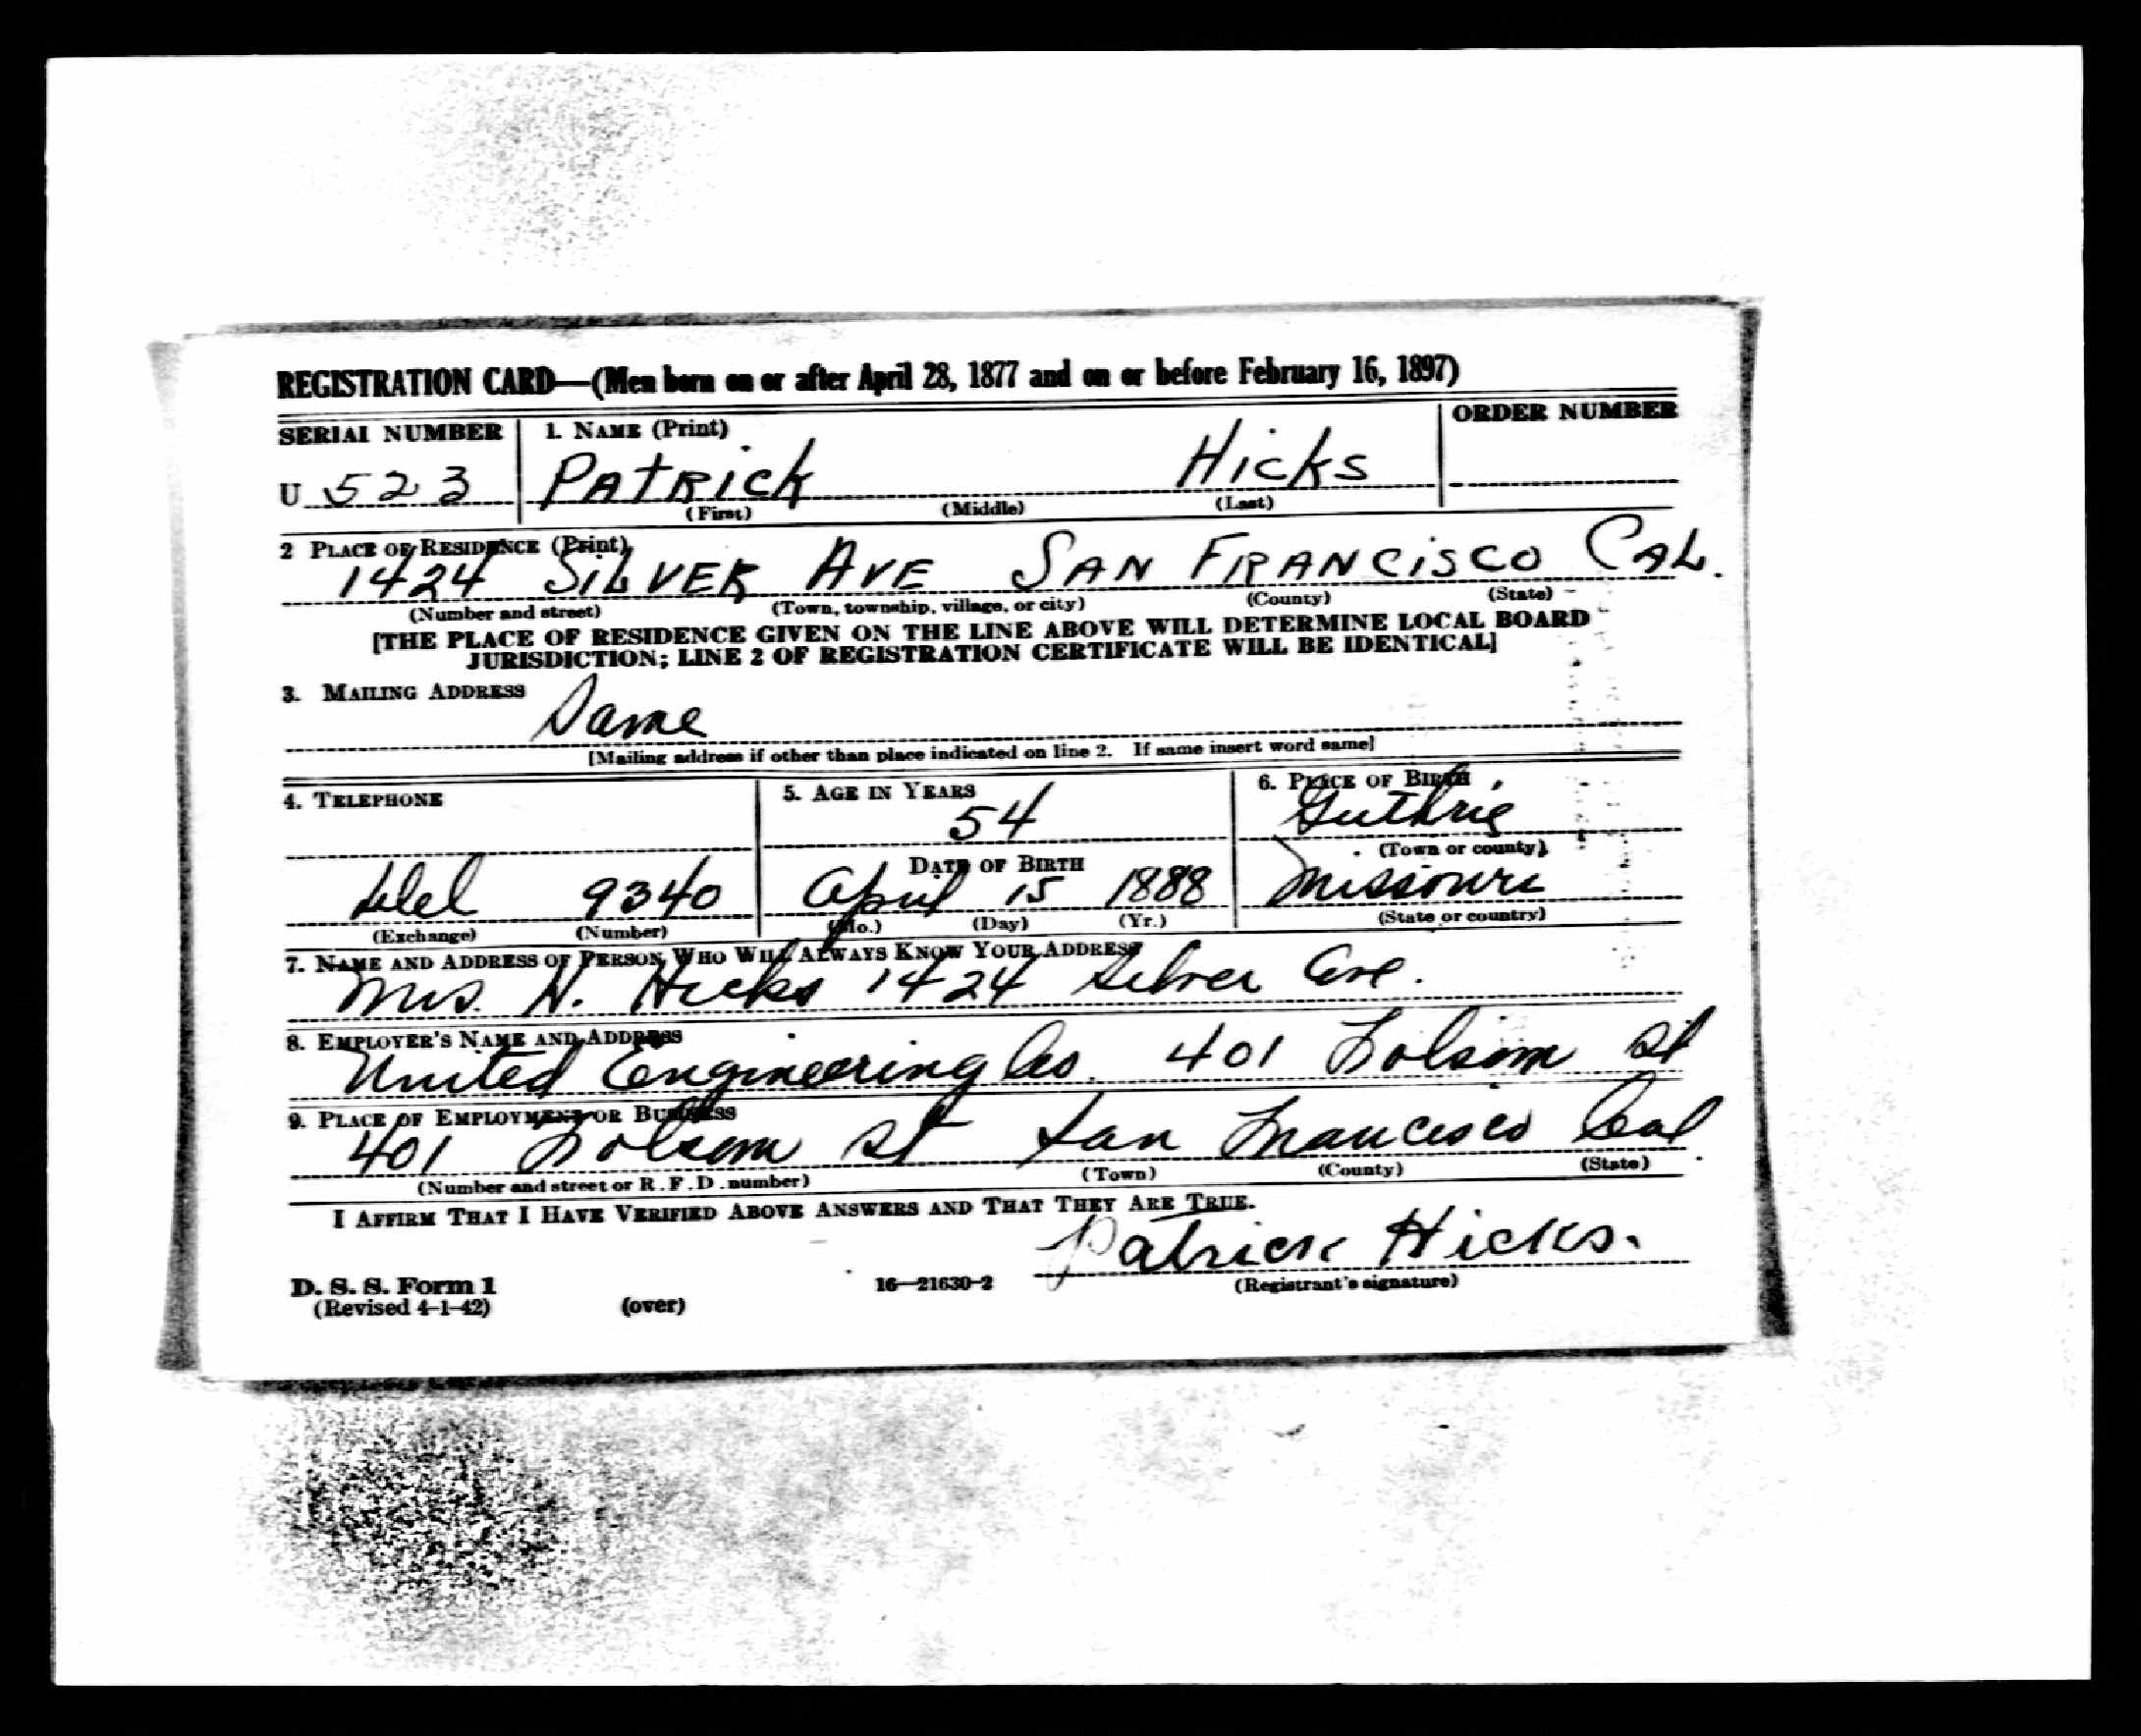 REGISTRATION CARD—(Men born on or after April 28, 1877 and on or before February 16, 1897)
SERIAL NUMBER 1. NAME (Print) ORDER NUMBER
U 523 PATRICK Hicks
(First) (Middle) (Last)
2 PLACE OF RESIDENCE (Print)
1424 SILVER AVE SAN FRANCISCO CAL.
(Number and street) (Town, township, village, or city) (County) (State)
[THE PLACE OF RESIDENCE GIVEN ON THE LINE ABOVE WILL DETERMINE LOCAL BOARD
JURISDICTION; LINE 2 OF REGISTRATION CERTIFICATE WILL BE IDENTICAL]
3. MAILING ADDRESS
Same
[Mailing address if other than place indicated on line 2. If same insert word same]
4. TELEPHONE 5. AGE IN YEARS 6. PLACE OF BIRTH
54 Guthrie
DATE OF BIRTH (Town or county)
9340 April 15 1888 Missouri
(Exchange) (Number) (Mo.) (Day) (Yr.) (State or country)
7. NAME AND ADDRESS OF PERSON WHO WILL ALWAYS KNOW YOUR ADDRESS
Mrs. N. Hicks 1424 Silver Ave.
8. EMPLOYER'S NAME AND ADDRESS
United Engineering Co. 401 Folsom St
9. PLACE OF EMPLOYMENT OR BUSINESS
401 Folsom St San Francisco Cal
(Number and street or R.F.D. number) (Town) (County) (State)
I AFFIRM THAT I HAVE VERIFIED ABOVE ANSWERS AND THAT THEY ARE TRUE.
Patrick Hicks.
D. S. S. Form 1 16—21630-2 (Registrant's signature)
(Revised 4-1-42) (over)